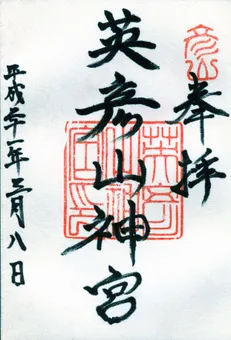 奉拝
英彦山神宮
平成二十一年三月八日